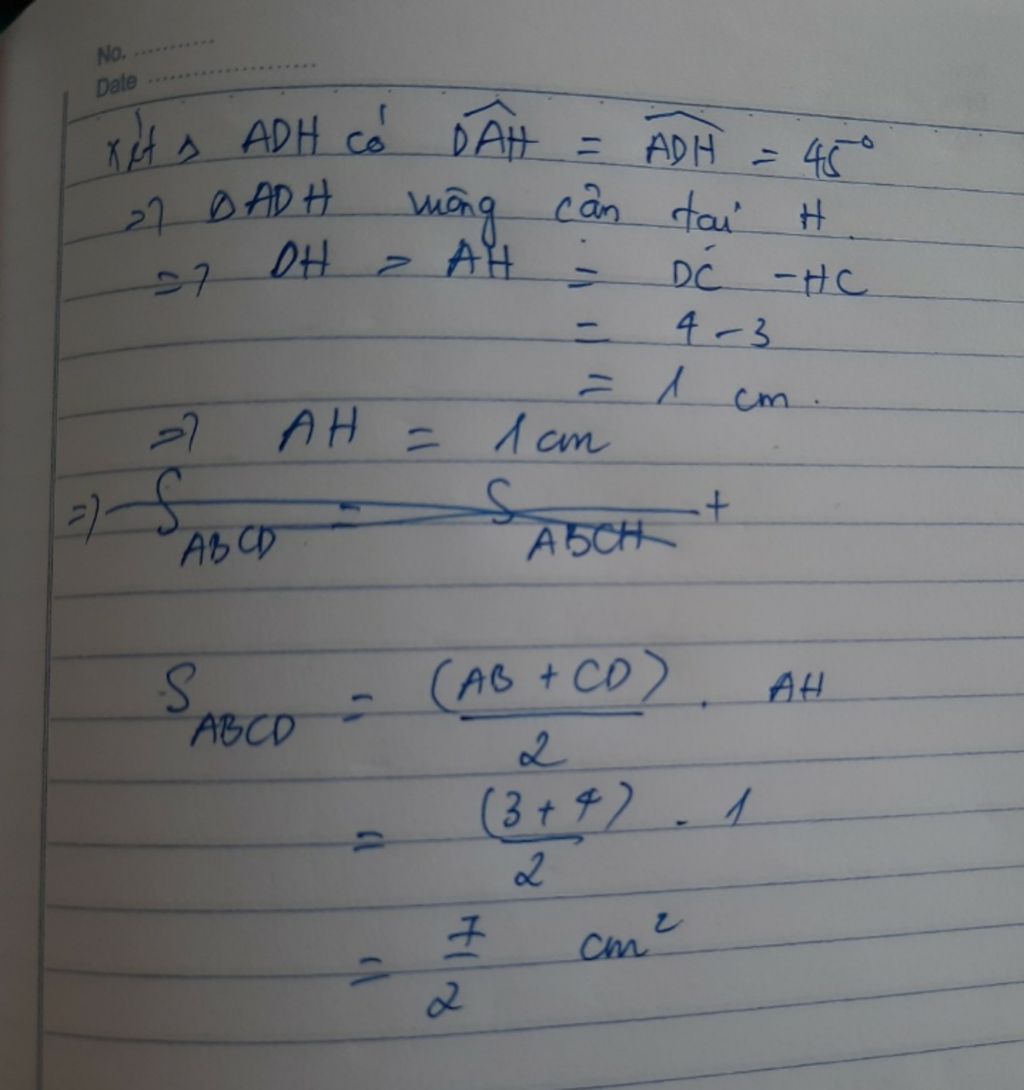 No. ............
Date ......................
Xét Δ ADH có \widehat{DAH} = \widehat{ADH} = 45°
=> Δ ADH vuông cân tại H.
=> DH = AH = DC - HC
= 4 - 3
= 1 cm.
=> AH = 1 cm
=> S_{ABCD} = S_{ABCH} +
S_{ABCD} = \frac{(AB + CD)}{2} . AH
= \frac{(3 + 4)}{2} . 1
= \frac{7}{2} cm²